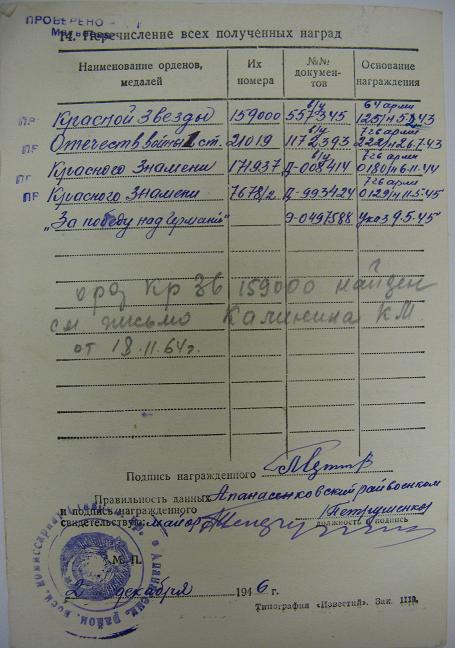 ПРОВЕРЕНО
14. Перечисление всех полученных наград
Наименование орденов, медалей
Их номера
№№ документов
Основание награждения
ПР Красной Звезды 159000 в/у 557345 64 арми 125/н 5.2.43
ПР Отечеств войны 1 ст. 21019 в/у 1172393 7 гв арми 222/н 26.7.43
ПР Красного Знамени 171937 в/у Д-008414 7 гв арми 0180/н 6.11.44
ПР Красного Знамени 7678/2 Д-993424 7 гв арми 0129/н 11.5.45
„За победу над Германией" Э-0497588 указ 9.5.45
орд Кр Зв 159000 найден
см письмо Калинина КМ
от 18.11.64г.
Подпись награжденного
Правильность данных Апанасенковский райвоенком
и подпись награжденного
свидетельствую: майор Петрушенко
должность и подпись
М. П.
2 декабря 1946 г.
Типография «Известий». Зак. 1110.